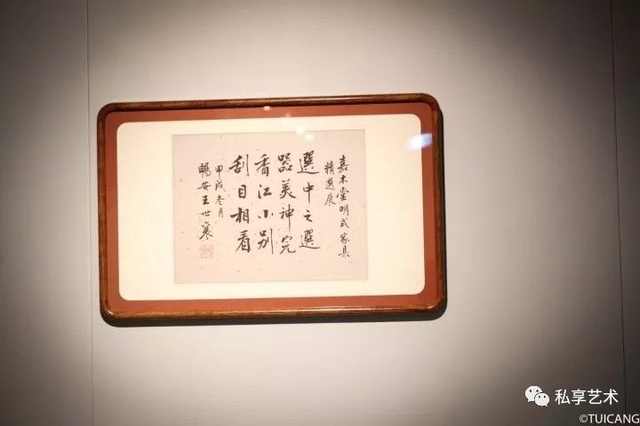 嘉木堂明式家具
精選展
選中之選
器美神完
香江小別
刮目相看
甲戌冬月
暢安王世襄
私享艺术
©TUICANG